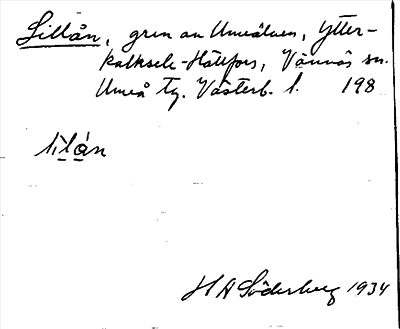 Lillån, gren av Umeälven, Ytter-
kalksele-Hällfors, Vännäs sn.
Umeå tg. Västerb. l. 198
lìlán
H A Söderberg 1934